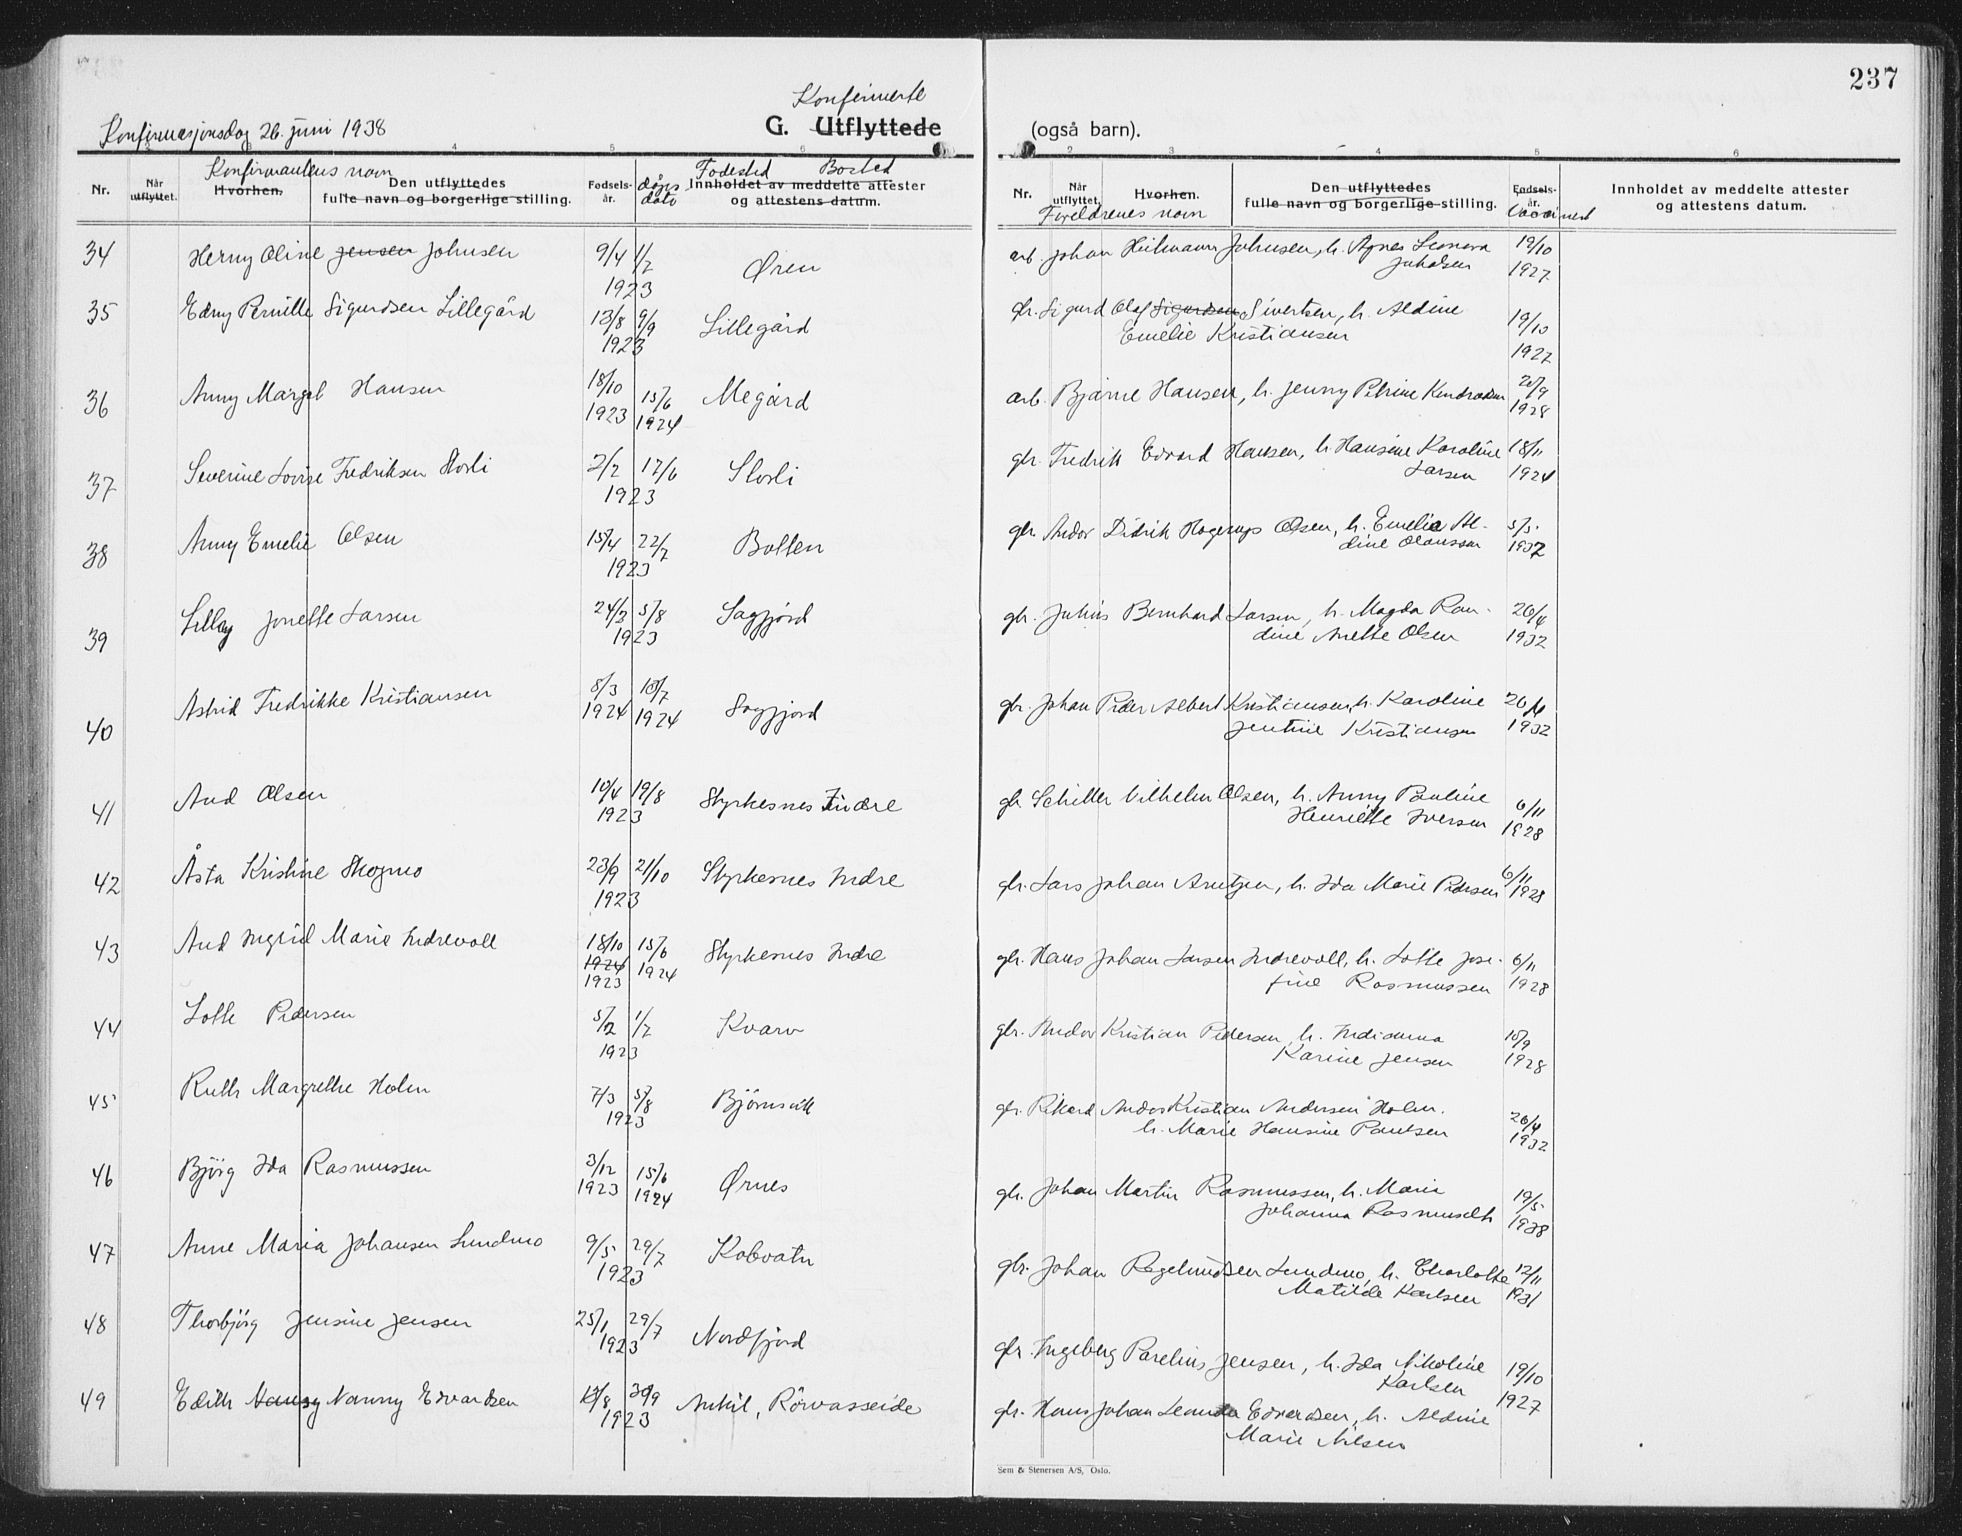 237
Konfirmerte
Konfirmasjonsdag 26. juni 1938
G. Utflyttede
(også barn).
Konfirmantens navn
Fødested Bosted
Nr.
Når utflyttet.
Hvorhen.
Den utflyttedes
fulle navn og borgerlige stilling.
Fødsels-
år.
dåps
dato
Innholdet av meddelte attester
og attestens datum.
Nr.
Når utflyttet.
Hvorhen.
Foreldrenes navn
Den utflyttedes
fulle navn og borgerlige stilling.
Fødsels-
år.
Innholdet av meddelte attester
og attestens datum.
34 Herny Oline Jensen Johnsen 9/4 1/7 1923 Øren
arb. Johan Johnsen, h. Agnes Leonora 19/10 1927
35 Edny Pernille Sigurdsen Lillegård 13/8 9/9 1923 Lillegård
gbr. Sigurd Olaf Sigurdsen Sivertsen, h. Aldine
Emelie Kristiansen 19/10 1927
36 Anny Margot Hansen 18/10 1923 15/6 1924 Megård
arb. Bjarne Hansen, h. Jenny Petrine 20/9 1928
37 Severine Lovise Fredriksen Storli 2/2 17/6 1923 Storli
gbr. Fredrik Edvard Hansen, h. Hansine Karoline
Larsen 18/11 1924
38 Anny Emelie Olsen 15/4 22/7 1923 Botten
gbr. Andor Didrik Hagerup Olsen, h. Emelie Al-
dine Olaussen 5/5 1937
39 Lilly Jonette Larsen 24/3 5/8 1923 Sagfjord
gbr. Julius Bernhard Larsen, h. Magda Ran-
dine Anette Olsen 26/4 1932
40 Astrid Fredrikke Kristiansen 8/3 1924 10/7 1924 Sagfjord
gbr. Johan Peder Albert Kristiansen, h. Karoline
Jentine Kristiansen 26/4 1932
41 Aud Olsen 10/4 19/8 1923 Styrkesnes Indre
gbr. Schiller Vilhelm Olsen, h. Anny Pauline
Henriette Iversen 6/11 1928
42 Åsta Kristine Skogmo 23/9 21/10 1923 Styrkesnes Indre
gbr. Lars Johan Arntzen, h. Ida Marie Pedersen 6/11 1928
43 Aud Ingrid Marie Indrevoll 18/10 1924 1923 15/6 1924 Styrkesnes Indre
gbr. Hans Johan Larsen Indrevoll, h. Lotte Jose-
fine Rasmussen 6/11 1928
44 Lotte Pedersen 5/2 1/7 1923 Kvarv
gbr. Andor Kristian Pedersen, h. Indianna
Karine Jensen 10/9 1928
45 Ruth Margrethe Holm 7/3 5/8 1923 Bjørnsvik
gbr. Rikard Andor Kristian Andersen Holm.
h. Marie Hansine Paulsen 26/4 1932
46 Bjørg Ida Rasmussen 3/12 1923 15/6 1924 Ørnes
gbr. Johan Martin Rasmussen, h. Marie
Johanna 19/5 1928
47 Anne Maria Johansen Lundmo 9/5 29/7 1923 Kobvatn
gbr. Johan Lundmo, h. Charlotte
Matilde Karlsen 12/11 1931
48 Thorbjørg Jensine Jensen 25/1 29/7 1923 Nordfjord
gbr. Ingeberg Parelius Jensen, h. Ida Nikoline
Karlsen 19/10 1927
49 Edith Nanny Edvardsen 30/9 1923
gbr. Hans Johan Edvardsen, h. Aldine
Marie Nilsen
Sem & Stenersen A/S, Oslo.